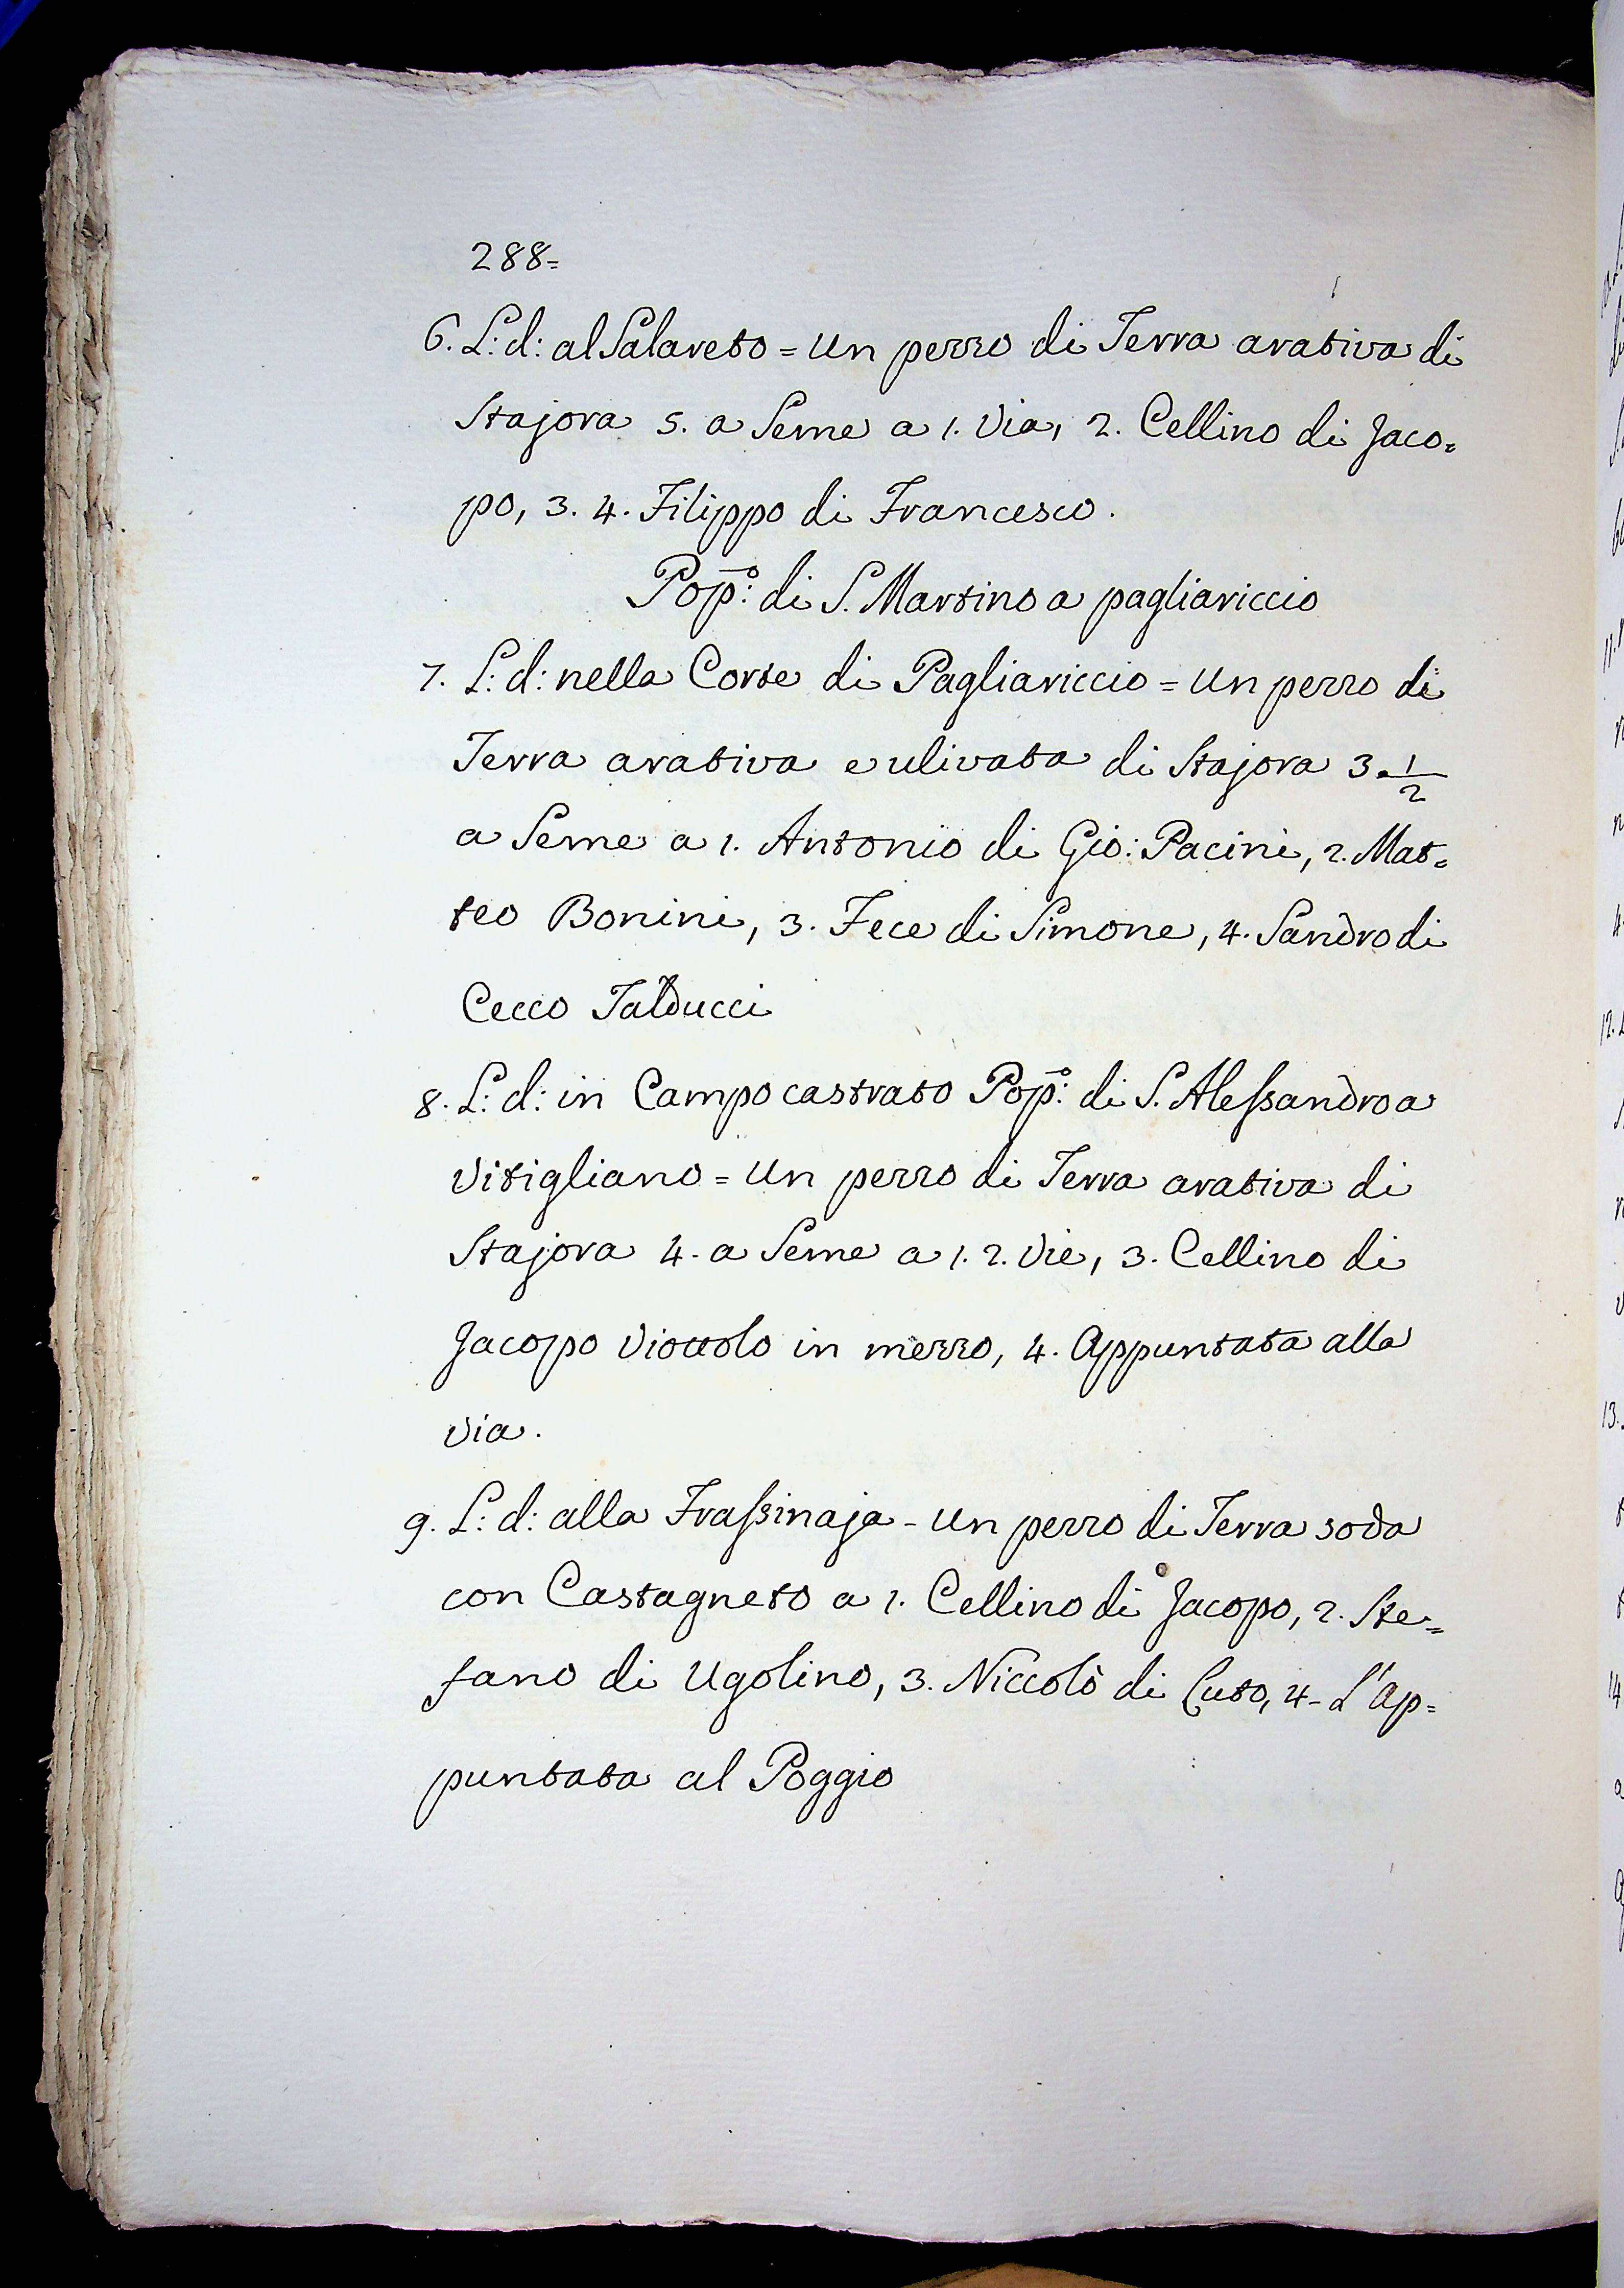 288=
6. L: d: al Salareto = Un pezzo di Terra arativa di
Stajora 5. a Seme a 1. Via, 2. Cellino di Jaco=
po, 3. 4. Filippo di Francesco.
Pop̄:º di S. Martino a pagliariccio
7. L: d: nella Corte di Pagliariccio = Un pezzo di
Terra arativa e ulivata di Stajora 3. 1/2
a Seme a 1. Antonio di Gio: Pacini, 2. Mat=
teo Bonini, 3. Fece di Simone, 4. Sandro di
Cecco Talducci
8. L: d: in Campo castrato Pop̄:º di S. Aleſsandro a
Vitigliano = Un pezzo di Terra arativa di
Stajora 4. a Seme a 1. 2. Vie, 3. Cellino di
Jacopo Viottolo in mezzo, 4. Appuntata alla
via.
9. L: d: alla Fraſsinaja - Un pezzo di Terra soda
con Castagneto a 1. Cellino di Jacopo, 2. Ste=
fano di Ugolino, 3. Niccolò di Cuto, 4. L'Ap=
puntata al Poggio